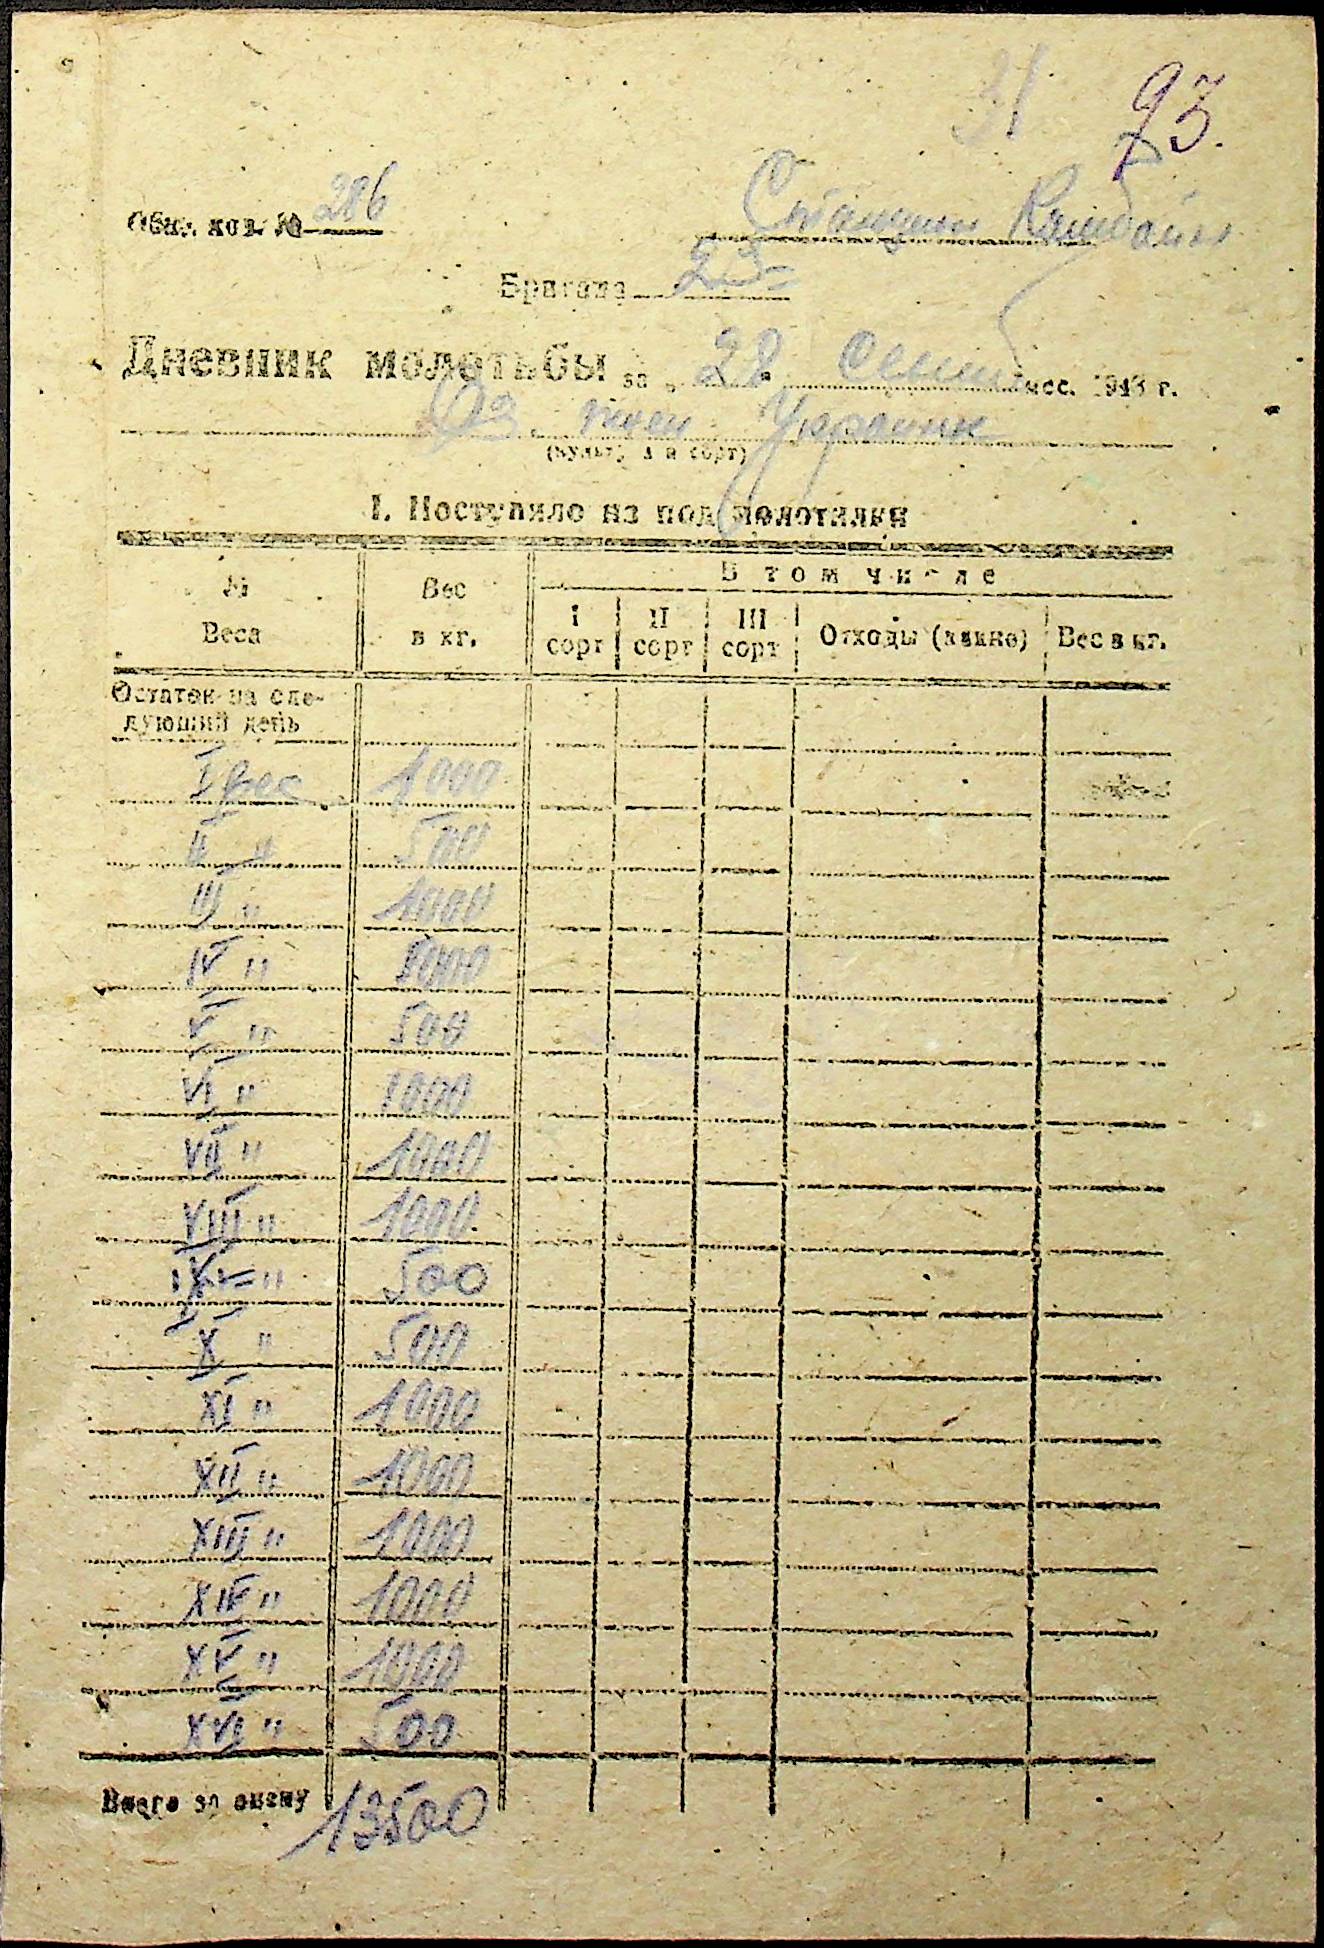 31 93.
Общ. хоз. № 286
Комбайн
Бригада 23
Дневник молотьбы за „28" сентяб мес. 1943 г.
Оз. пшен Украинк
(культура и сорт)
I. Поступило из под молотилки
№ Веса Вес в кг. В том числе
I сорт II сорт III сорт Отходы (какие) Вес в кг.
Остаток на сле-
дующий день
I вес 1000
II " 500
III " 1000
IV " 1000
V " 500
VI " 1000
VII " 1000
VIII " 1000
IX " 500
X " 500
XI " 1000
XII " 1000
XIII " 1000
XIV " 1000
XV " 1000
XVI " 500
Всего за смену 13500